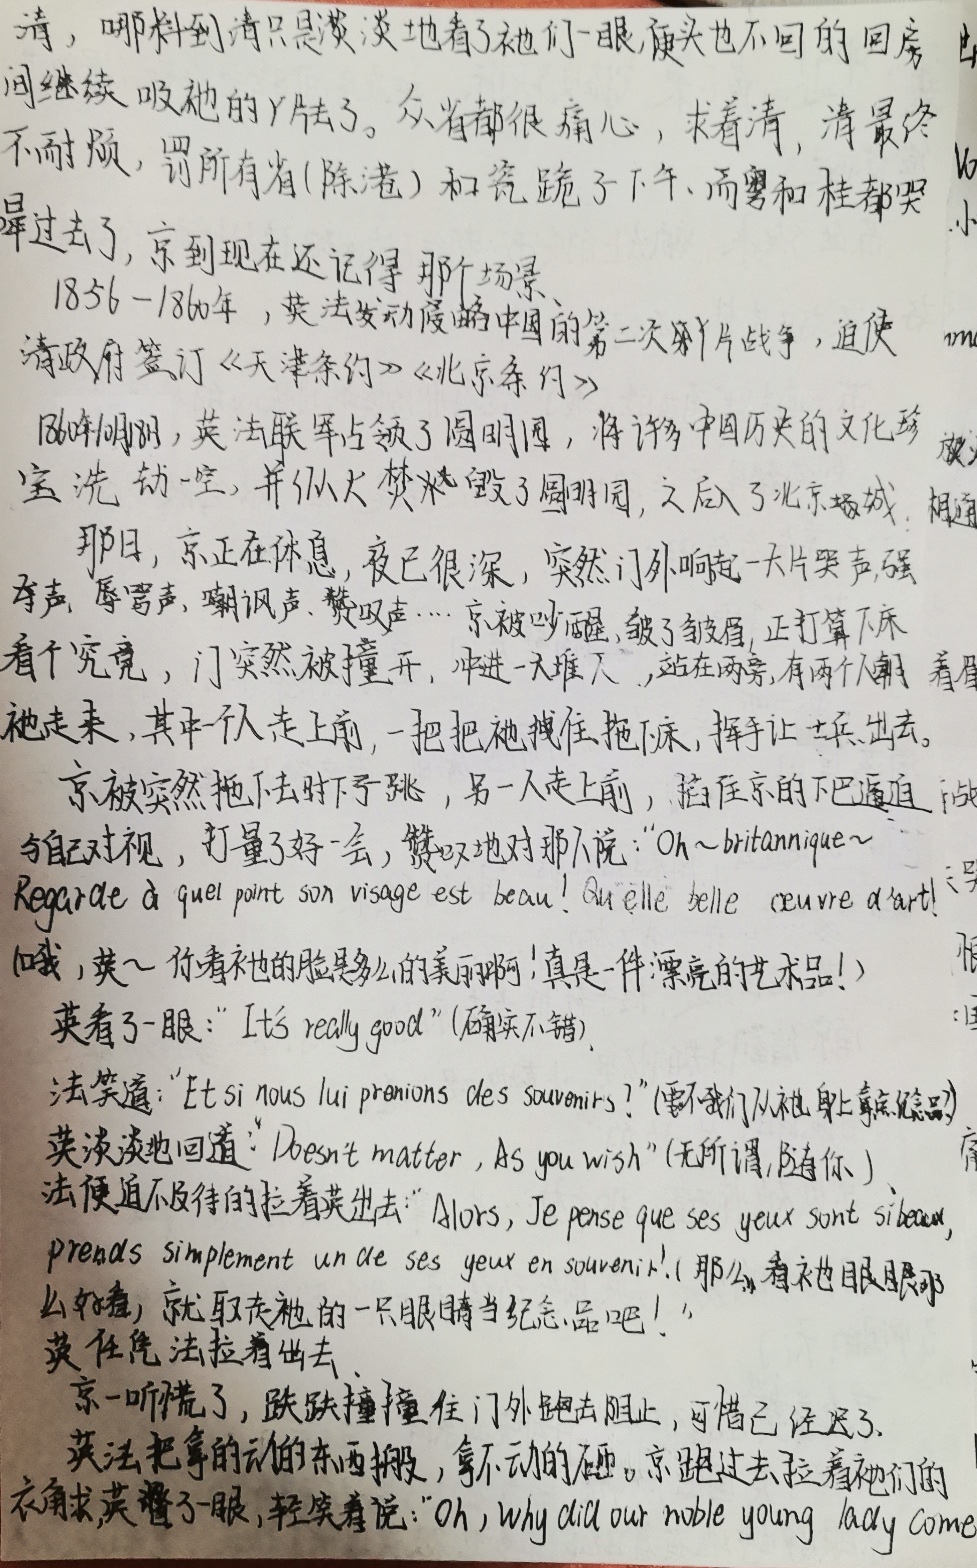 清，哪料到清只是淡淡地看了祂们一眼，便头也不回的回房
间继续吸祂的丫片去了。众省都很痛心，求着清，清最终
不耐烦，罚所有省（除港）和瓷跪了下午、而粤和桂都哭
晕过去了，京到现在还记得那个场景、
1856-1860年，英法发动侵略中国的第二次丫片战争，迫使
清政府签订《天津条约》《北京条约》
1860年10月18日，英法联军占领了圆明园，将许多中国历史的文化珍
宝洗劫一空，并纵火焚烧毁了圆明园，之后入了北京城
那日，京正在休息，夜已很深，突然门外响起一大片哭声，强
夺声、辱骂声、嘲讽声、赞叹声…… 京被吵醒，皱了皱眉，正打算下床
看个究竟，门突然被撞开，冲进一大堆人，站在两旁，有两个人朝
祂走来，其中一个人走上前，一把把祂拽住拖下床，挥手让士兵出去。
京被突然拖下去吓了跳，另一人走上前，掐住京的下巴逼迫
与自己对视，打量了好一会，赞叹地对那人说：“Oh～britannique～
Regarde à quel point son visage est beau! Qu'elle belle œuvre d'art!
（哦，英～ 你看祂的脸是多么的美丽啊！真是一件漂亮的艺术品！）
英看了一眼：“It's really good”（确实不错）、
法笑道：“Et si nous lui prenions des souvenirs?”（要不我们从祂身上拿点纪念品？）
英淡淡地回道：“Doesn't matter, As you wish”（无所谓，随你）、
法便迫不及待的拉着英出去：“Alors, Je pense que ses yeux sont si beaux,
prends simplement un de ses yeux en souvenir!（那么，看祂眼眼那
么好看，就取走祂的一只眼睛当纪念品吧！”
英任凭法拉着出去、
京一听慌了，跌跌撞撞往门外跑去阻止，可惜已经迟了、
英法把拿的动的东西搬，拿不动的砸。京跑过去拉着祂们的
衣角求，英瞥了一眼，轻笑着说：“Oh, why did our noble young lady come